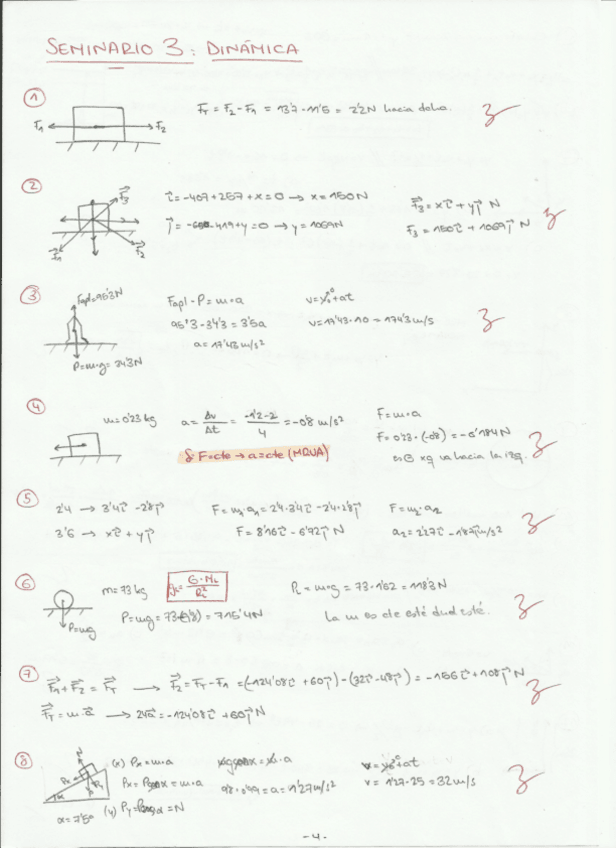 SEMINARIO 3: DINÁMICA
1
F1 F2
FT = F2 - F1 = 13'7 - 11'5 = 2'2N hacia dcha.
2
F3
F1 F2
i = -407 + 257 + x = 0 → x = 150N
j = -650 - 419 + y = 0 → y = 1069N
F3 = xi + yj N
F3 = 150i + 1069j N
3
Fapl = 95'3N
P = m·g = 34'3N
Fapl - P = m·a
95'3 - 34'3 = 3'5a
a = 17'43 m/s²
v = v0 + at
v = 17'43·10 = 174'3 m/s
4
m = 0'23 kg
a = Δv/Δt = -1'2-2/4 = -0'8 m/s²
si F = cte → a = cte (MRUA)
F = m·a
F = 0'23·(-0'8) = -0'184N
es ⊖ xq va hacia la izq.
5
2'4 → 3'4i - 2'8j
3'6 → xi + yj
F = m1·a1 = 2'4·3'4i - 2'4·2'8j
F = 8'16i - 6'72j N
F = m2·a2
a2 = 2'27i - 1'87j m/s²
6
P = mg
m = 73 kg
gL = G·ML/RL²
P = mg = 73·(9'8) = 715'4N
PL = m·g = 73·1'62 = 118'3N
La m es cte esté dnd esté.
7
F1 + F2 = FT → F2 = FT - F1 = (-124'08i + 60j) - (32i - 48j) = -156i + 108j N
FT = m·a → 24a = -124'08i + 60j N
8
N
Px Py
P
α
α = 7'5º
(x) Px = m·a
Px = P senα = m·a
(y) Py = P cosα = N
mg senα = m·a
a = 1'27 m/s²
v = v0 + at
v = 1'27·25 = 32 m/s
-4-